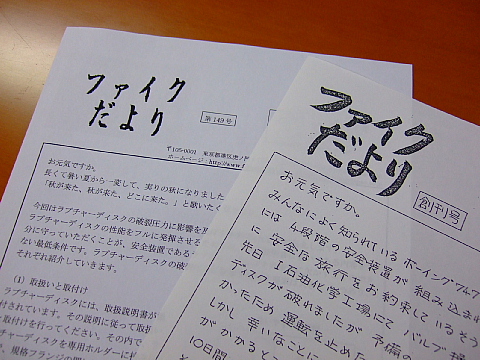 ファイク
だより
第149号
〒105-0001 東京都港区虎ノ門
ホームページ：http://www.f
お元気ですか。
長くて暑い夏から一変して、実りの秋になりました
「秋が来た、秋が来た、どこに来た。」と歌いたく
今回はラプチャーディスクの破裂圧力に影響を及
ラプチャーディスクの性能をフルに発揮させる
分に守っていただくことが、安全装置である
ない最低条件です。ラプチャーディスクの破
それぞれ紹介していきます。
(1) 取扱いと取付け
ラプチャーディスクには、取扱説明書が
付されています。その説明に従って取扱
と取付けを行ってください。その内で
チャーディスクを専用ホルダーに
、規格フランジの間
ファイク
だより
創刊号
お元気ですか。
みんなによく知られているボーイング747
には 4段階の安全装置が組み込ま
に 安全な旅行をお約束しているそう
先日 I石油化学工場にて バルブ
ディスクが破れましたが 予備
かったため 運転を止めた
しかし 幸いなことに
がかかると
10日間